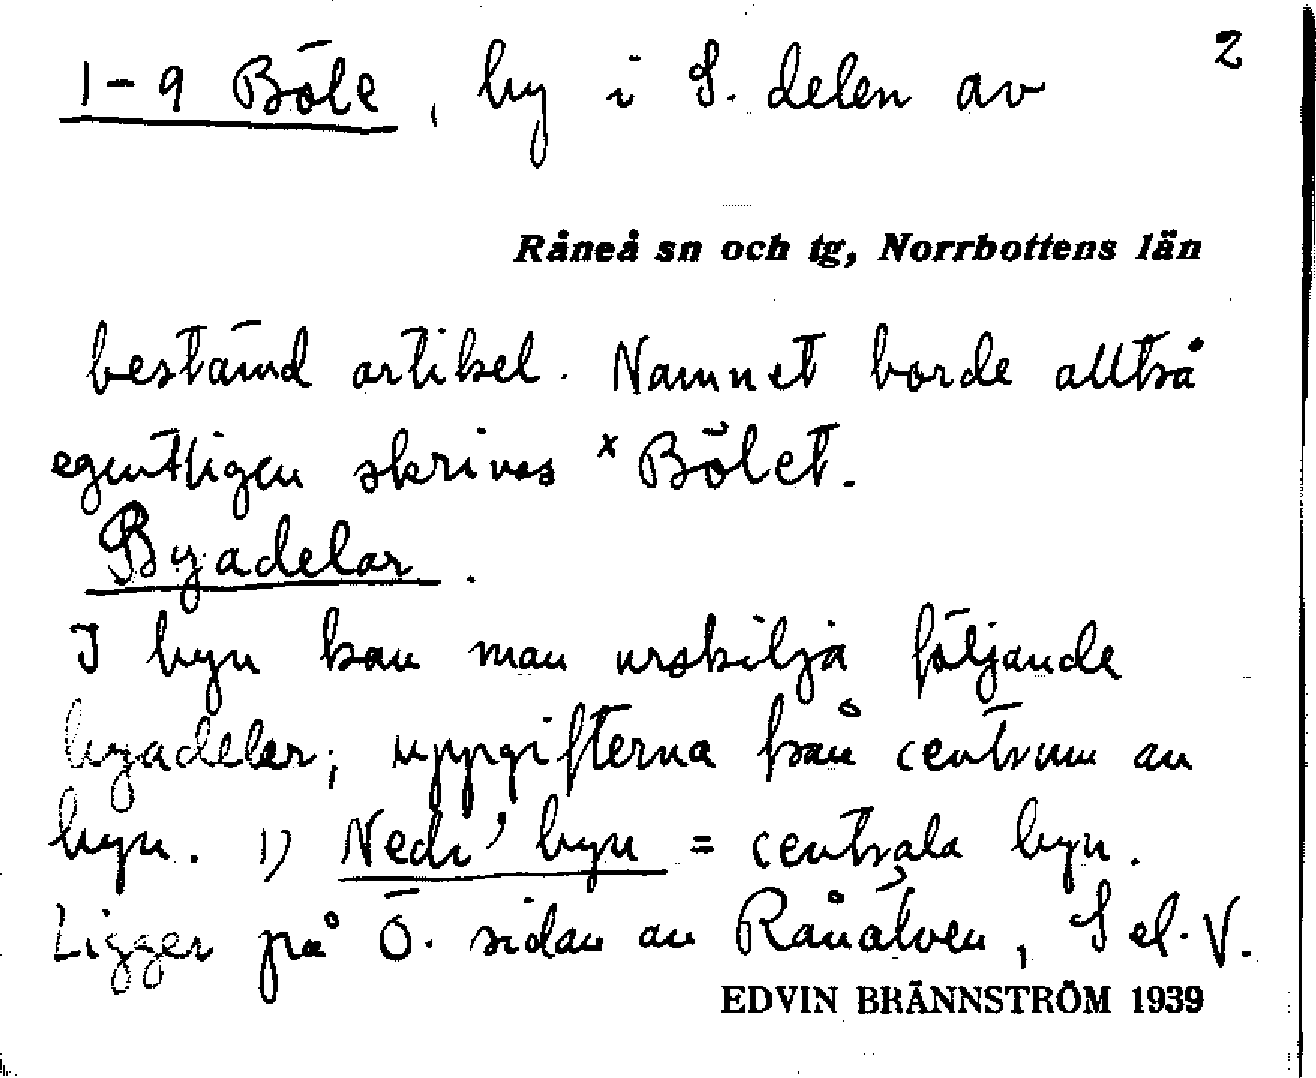 2
1-9 Böle, by i S. delen av
Råneå sn och tg, Norrbottens län
bestämd artikel. Namnet borde alltså
egentligen skrivas ×Bölet.
Byadelar.
I byn kan man urskilja följande
byadelar; uppgifterna från centrum av
byn. 1) Nedi' byn = centrala byn.
Ligger på Ö. sidan av Råneälven, S el. V.
EDVIN BRÄNNSTRÖM 1939